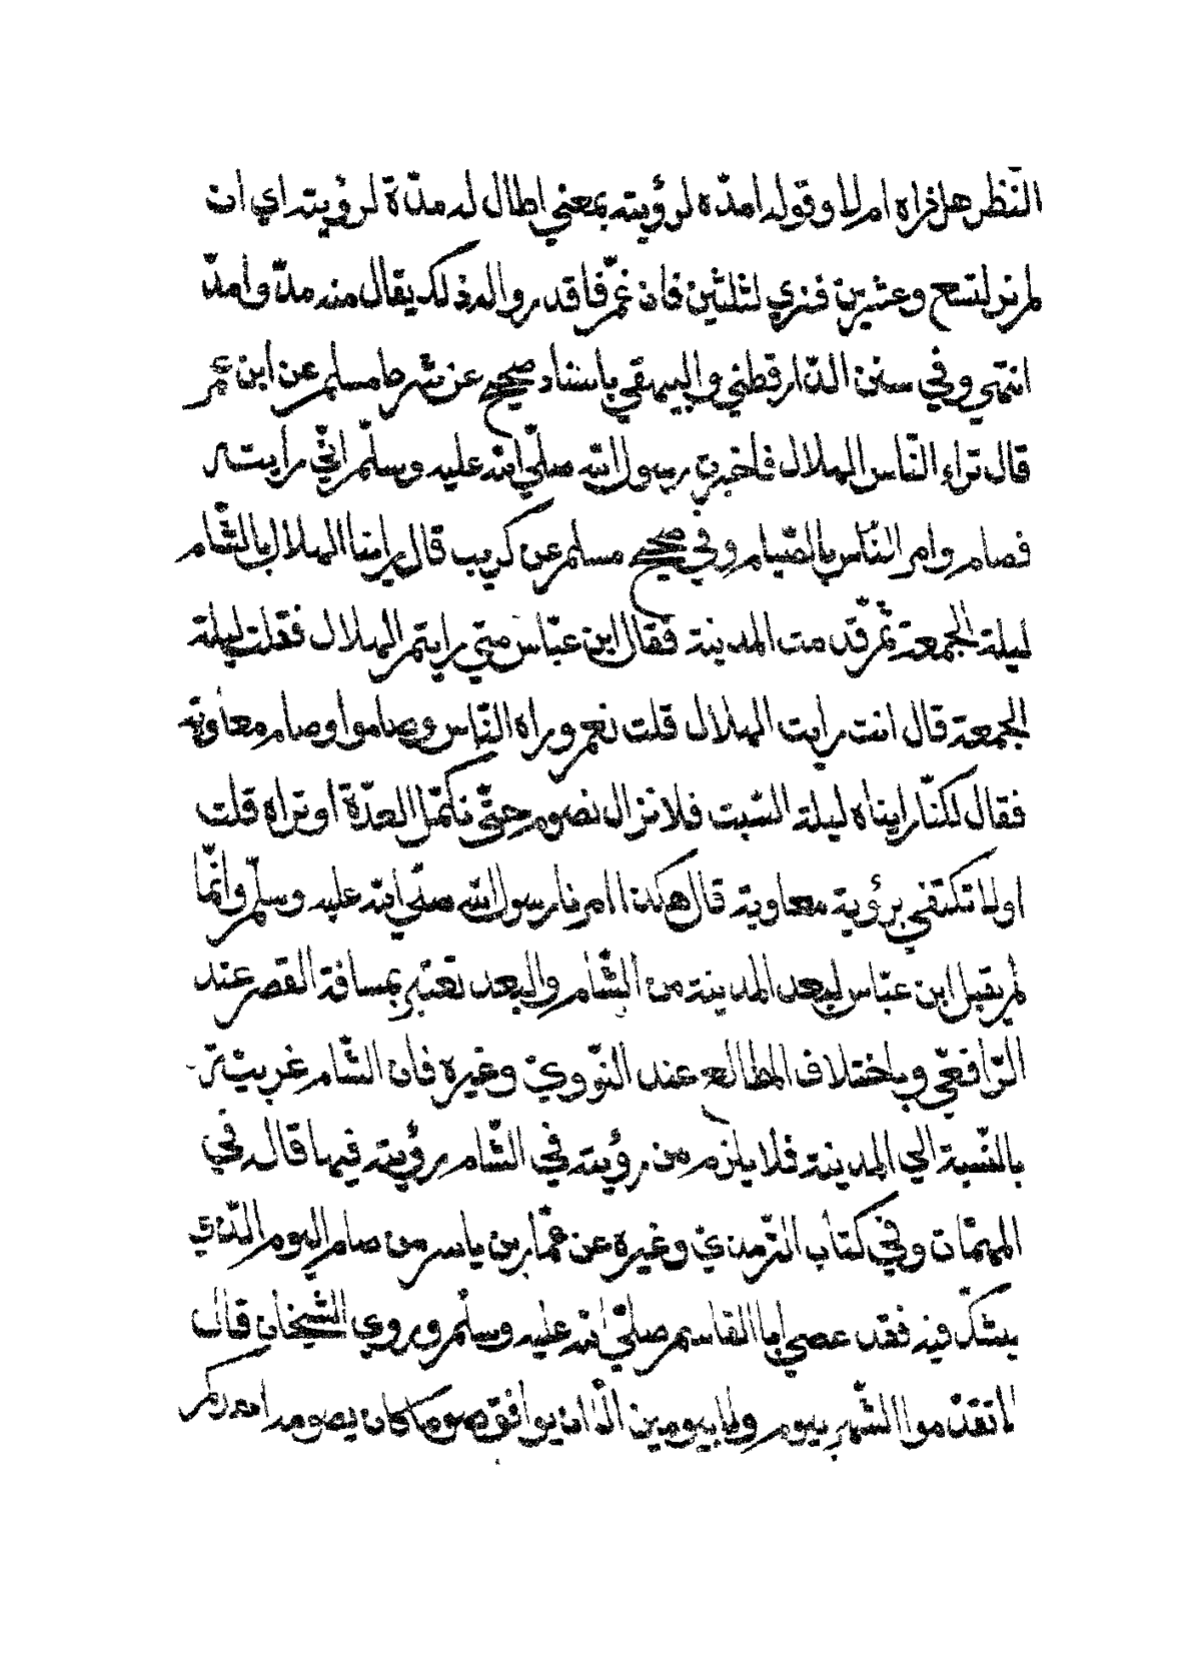 النّظر هل نراه ام لا وقوله امدّه لرؤيته بمعني اطال له مدّة لرؤيته اي ان
لم نر لتسع وعشرين فنري لثلثين فان غمّ فاقدروا له فذلك يقال منه مدّ وامدّ
انتهي وفي سنن الدّارقطني والبيهقي باسناد صحيح عن شرط مسلم عن ابن عمر
قال تراءِ النّاس الهلال فاخبرت رسول اللّه صلّي اللّه عليه وسلّم انّي رايته
فصام وامر النّاس بالصّيام وفي صحيح مسلم عن كريب قال راينا الهلال بالشّام
ليلة الجمعة ثمّ قدمت المدينة فقال ابن عبّاس متي رايتم الهلال فقلت ليلة
الجمعة قال انت رايت الهلال قلت نعم وراه النّاس وصاموا وصام معاوية
فقال لكنّا رايناه ليلة السّبت فلا نزال نصوم حتّي نكمّل العدّة او نراه قلت
اولا تكتفي برؤية معاوية قال هكذا امرنا رسول اللّه صلّي اللّه عليه وسلّم وانّما
لم يقبل ابن عبّاس لبعد المدينة من الشّام والبعد تعتبر بمسافة القصر عند
الرّافعّي وباختلاف المطالع عند النّوويّ وغيره فان الشّام غربيّة
بالنّسبة الي المدينة فلا يلزم من رؤيته في الشّام رؤيته فيها قال في
المهمّات وفي كتاب التّرمذيّ وغيره عن عمّار بن ياسر من صام اليوم الّذي
يشكّ فيه فقد عصي ابا القاسم صلّي اللّه عليه وسلّم وروي الشّيخان قال
لا تقدّموا الشّهر بيوم ولا بيومين الّا ان يوافق صوما كان يصومه احدكم